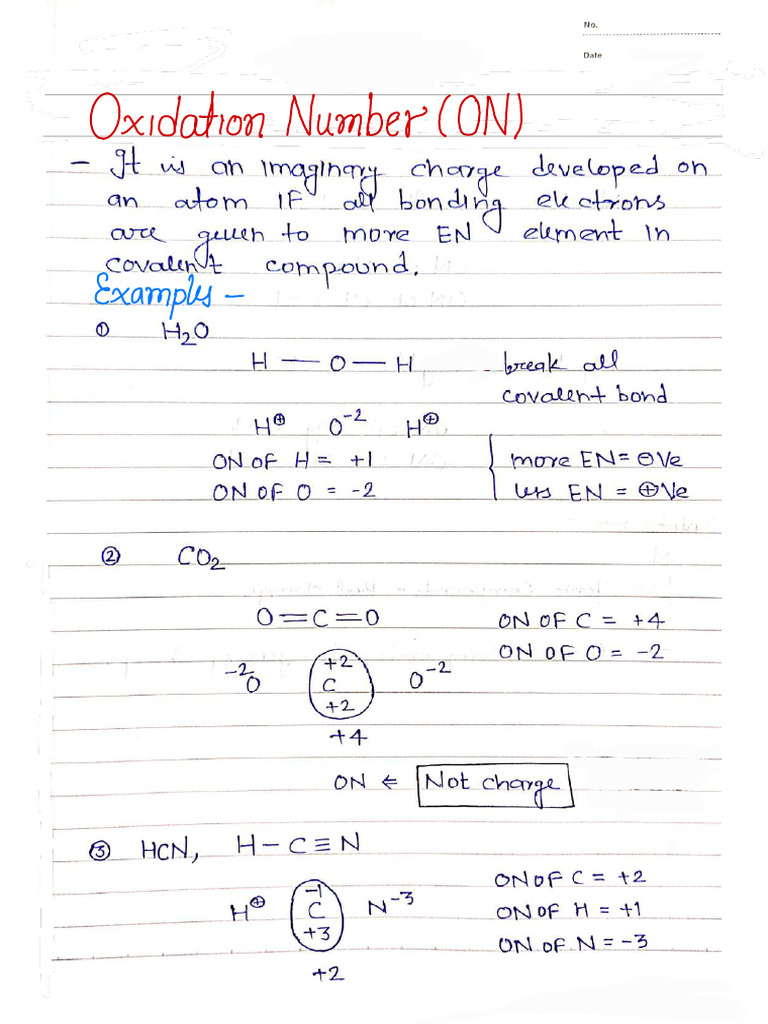 No.
Date
Oxidation Number (ON)
- It is an imaginary charge developed on
an atom IF all bonding electrons
are given to more EN element in
covalent compound.
Examples -
① H₂O
H — O — H break all
covalent bond
H⊕ O⁻² H⊕
ON OF H = +1 more EN = ⊖Ve
ON OF O = -2 less EN = ⊕Ve
② CO₂
O=C=O ON OF C = +4
ON OF O = -2
+2
⁻²O C O⁻²
+2
+4
ON ⇐ Not charge
③ HCN, H-C≡N
ON OF C = +2
-1
H⊕ C N⁻³ ON OF H = +1
+3
ON OF N = -3
+2